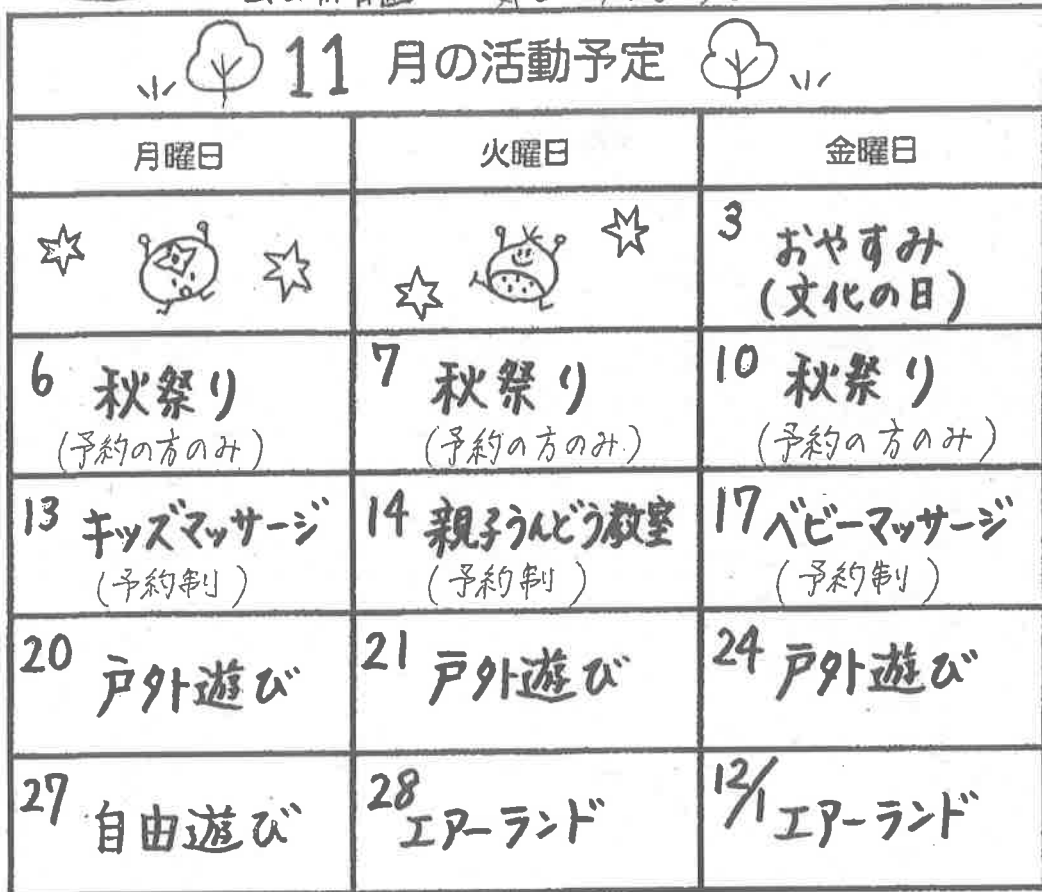 11月の活動予定
月曜日 火曜日 金曜日
3 おやすみ
(文化の日)
6 秋祭り
(予約の方のみ)
7 秋祭り
(予約の方のみ)
10 秋祭り
(予約の方のみ)
13 キッズマッサージ
(予約制)
14 親子うんどう教室
(予約制)
17 ベビーマッサージ
(予約制)
20 戸外遊び
21 戸外遊び
24 戸外遊び
27 自由遊び
28 エアーランド
12/1 エアーランド